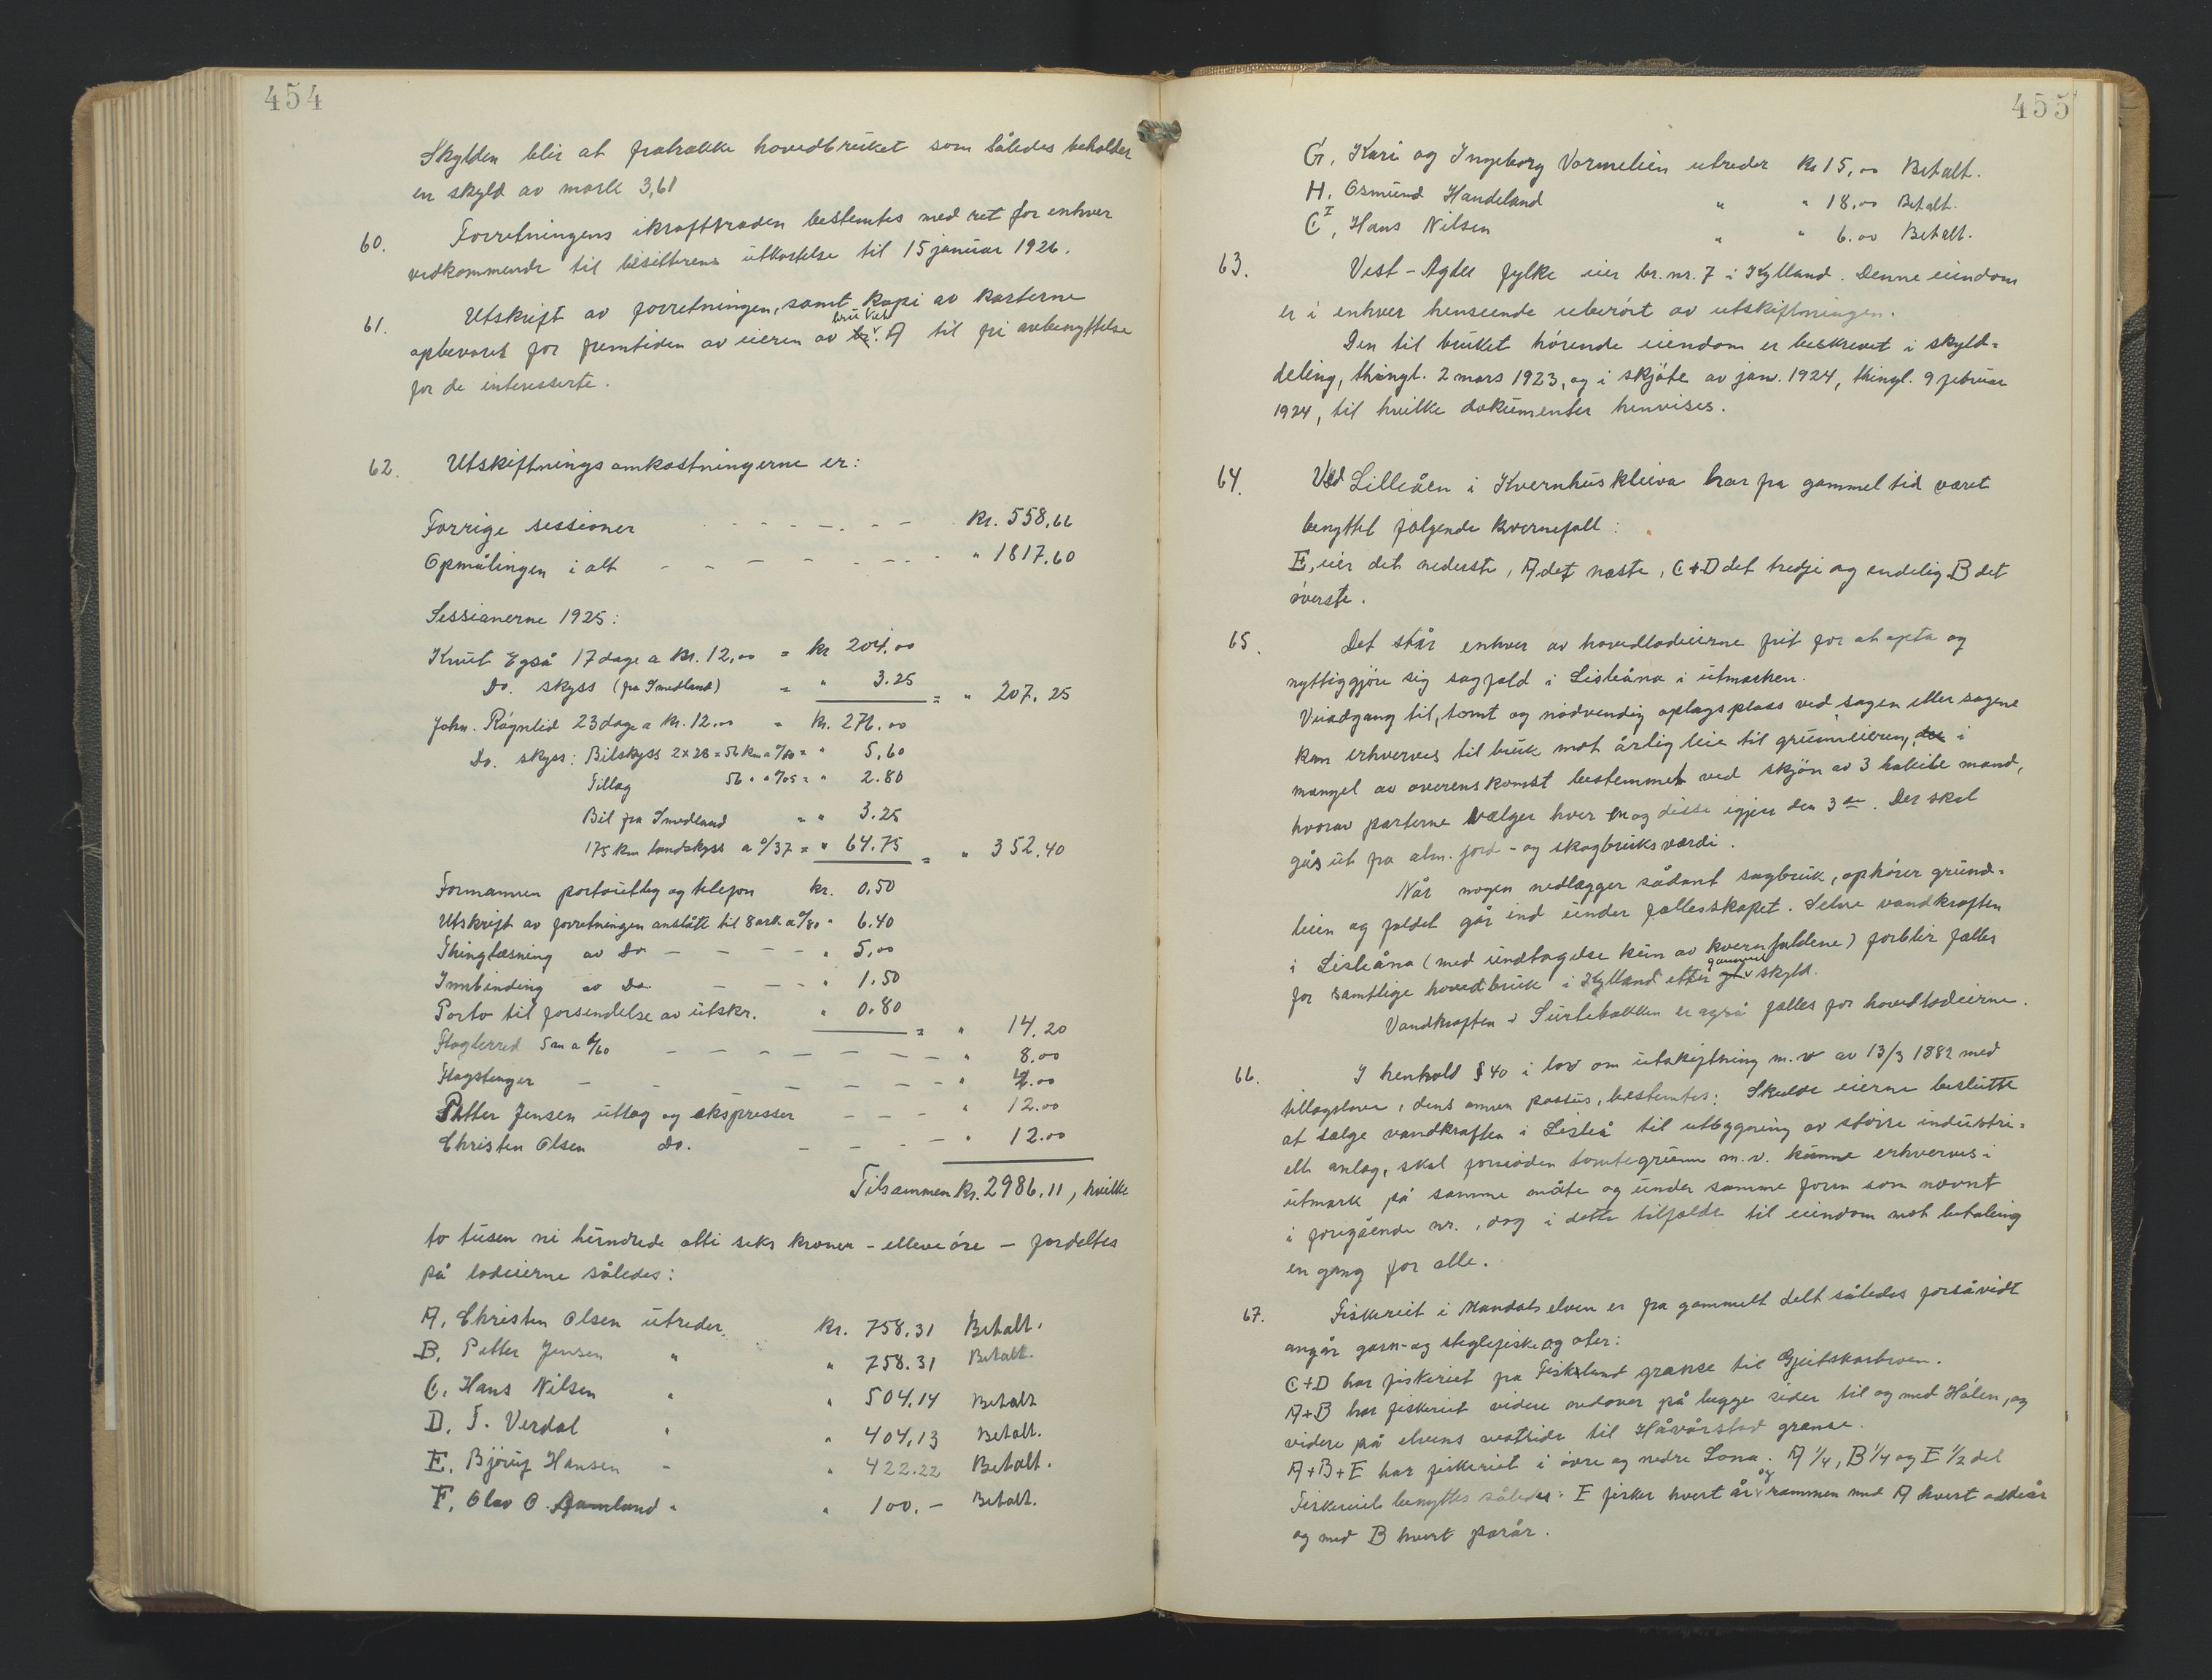 454
Skylden blir at fratrække hovedbruket som således beholder
en skyld av mark 3,61
60. Forretningens ikrafttræden bestemtes med ret for enhver
vedkommende til besitterens utkastelse til 15 januar 1926.
61. Utskrift av forretningen, samt kopi av karterne
opbevares for fremtiden av eieren av bruket A til fri avbenyttelse
for de interesserte.
62. Utskiftningsomkostningerne er:
Forrige sessioner - - - - - - kr. 558,66
Opmålingen i alt - - - - - - - " 1817.60
Sessionerne 1925:
Knut Egså 17 dage a kr. 12,00 = kr 204.00
Do. skyss (fra Smedland) = " 3.25 = " 207.25
John. Røgnlid 23 dage a kr. 12.00 = kr. 276.00
Do. skyss: Bilskyss 2x28 = 56 km a %10 = " 5,60
Tillæg 56 " a %05 = " 2.80
Bil fra Smedland " " 3.25
175 km landskyss a %37 = " 64.75 = " 352.40
Formannen portoutlæg og telefon kr. 0,50
Utskrift av forretningen anslått til 8 ark a %80 " 6.40
Thinglæsning av Do - - - - " 5,00
Innbinding av Do. - - - " 1.50
Porto til forsendelse av utskr. " 0.80 = " 14.20
Flaglerred 5 m a 1/60 - - - - - - - - " 8.00
Flagstenger - - - - - - " 4.00
Petter Jensen utlæg og ekspresser - - - " 12.00
Christen Olsen Do. - - - - " 12.00
Tilsammen kr. 2986.11, hvilke
to tusen ni hundrede otti seks kroner - elleve øre - fordeltes
på lodeierne således:
A, Christen Olsen utreder kr. 758.31 Betalt.
B, Petter Jensen " " 758.31 Betalt.
C, Hans Nilsen " " 504,14 Betalt
D, T. Verdal " " 404,13 Betalt.
E. Bjøruf Hansen " " 422.22 Betalt.
F, Olav O. Aamland " " 100.- Betalt.
455
G, Kari og Ingeborg Vormelien utreder kr 15,00 Betalt.
H, Osmund Handeland " " 18,00 Betalt.
C I, Hans Nilsen " " 6.00 Betalt.
63. Vest-Agder fylke eier br. nr. 7 i Kylland. Denne eiendom
er i enhver henseende uberørt av utskiftningen.
Den til bruket hörende eiendom er beskrevet i skyld-
deling, thingl. 2 mars 1923, og i skjöte av jan. 1924, thingl. 9 februar
1924, til hvilke dokumenter henvises.
64. Ved Lilleåen i Kvernhuskleiva har fra gammel tid været
benyttet følgende kvernefall:
E, eier det nederste, A det næste, C+D det tredje og endelig B det
øverste.
65. Det står enhver av hovedlodeierne frit for at opta og
nyttiggjøre sig sagfald i Lisleåna i utmarken.
Veiadgang til, tomt og nødvendig oplagsplass ved sagen eller sagene
kan erhverves til bruk mot årlig leie til grunneieren, i
mangel av overenskomst bestemmet ved skjøn av 3 habile mænd,
hvorav parterne vælger hver en og disse igjen den 3die. Der skal
gås ut fra alm. jord- og skogbruksværdi.
Når nogen nedlægger sådant sagbruk, ophører grund-
leien og faldet går ind under fællesskapet. Selve vandkraften
i Lisleåna (med undtagelse kun av kvernfaldene) forblir fælles
for samtlige hovedbruk i Kylland efter gammel skyld.
Vandkraften i Surtebækken er også fælles for hovedlodeierne.
66. I henhold § 40 i lov om utskiftning m.v av 13/3 1882 med
tillægslover, dens annen passus, bestemtes: Skulde eierne beslutte
at sælge vandkraften i Lisleå til utbygning av større industri-
elt anlæg, skal fornøden tomtegrunn m.v. kunne erhverves i
utmark på samme måte og under samme form som nævnt
i foregående nr., dog i dette tilfælde til eiendom mot betaling
en gang for alle.
67. Fiskeriet i Mandalselven er fra gammelt delt således forsåvidt
angår garn- og steglefiske og oter:
C+D har fiskeriet fra Fiskeland grænse til Gjeitskarbroen.
A+B har fiskeriet videre nedover på begge sider til og med Hålen, og
videre på elvens vestside til Håvårstad grænse.
A+B+E har fiskeriet i øvre og nedre Lona. A 1/4, B 1/4 og E 1/2 del
Fiskeriet benyttes således: E fisker hvert år og sammen med A hvert oddeår
og med B hvert parår.